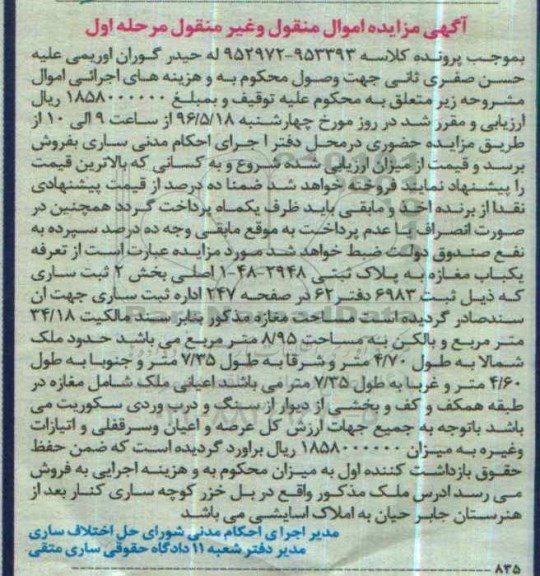 آگهی مزایده اموال منقول وغیر منقول مرحله اول
بموجب پرونده کلاسه ۹۵۳۳۹۳-۹۵۲۹۷۲ له حیدر گوران اوریمی علیه
حسن صفری ثانی جهت وصول محکوم به و هزینه های اجرائی اموال
مشروحه زیر متعلق به محکوم علیه توقیف و بمبلغ ۱۸۵۸۰۰۰۰۰۰ ریال
ارزیابی و مقرر شد در روز مورخ چهارشنبه ۹۶/۵/۱۸ از ساعت ۹ الی ۱۰ از
طریق مزایده حضوری درمحل دفتر ا جرای احکام مدنی ساری بفروش
برسد و قیمت از میزان ارزیابی شده شروع و به کسانی که بالاترین قیمت
را پیشنهاد نمایند فروخته خواهد شد ضمنا ده درصد از قیمت پیشنهادی
نقدا از برنده اخذ و مابقی باید ظرف یکماه پرداخت گردد همچنین در
صورت انصراف یا عدم پرداخت به موقع مابقی وجه ده درصد سپرده به
نفع صندوق دولت ضبط خواهد شد مورد مزایده عبارت است از تعرفه
یکباب مغازه به پلاک ثبتی ۲۹۴۸-۴۸-۱ اصلی بخش ۲ ثبت ساری
که ذیل ثبت ۶۹۸۳ دفتر ۶۲ در صفحه ۲۴۷ اداره ثبت ساری جهت ان
سندصادر گردیده است مساحت مغازه مذکور بنابر سند مالکیت ۳۴/۱۸
متر مربع و بالکن به مساحت ۸/۹۵ متر مربع می باشد حدود ملک
شمالا به طول ۴/۷۰ متر و شرقا به طول ۷/۳۵ متر و جنوبا به طول
۴/۶۰ متر و غربا به طول ۷/۳۵ متر می باشد اعیانی ملک شامل مغازه در
طبقه همکف و کف و بخشی از دیوار از سنگ و درب وردی سکوریت می
باشد باتوجه به جمیع جهات ارزش کل عرصه و اعیان وسرقفلی و اتیازات
وغیره به میزان ۱۸۵۸۰۰۰۰۰۰ ریال براورد گردیده است که ضمن حفظ
حقوق بازداشت کننده اول به میزان محکوم به و هزینه اجرایی به فروش
می رسد ادرس ملک مذکور واقع در بل خزر کوچه ساری کنار بعد از
هنرستان جابر حیان به املاک اسایشی می باشد
مدیر اجرای احکام مدنی شورای حل اختلاف ساری
مدیر دفتر شعبه ۱۱ دادگاه حقوقی ساری متقی
۸۳۵